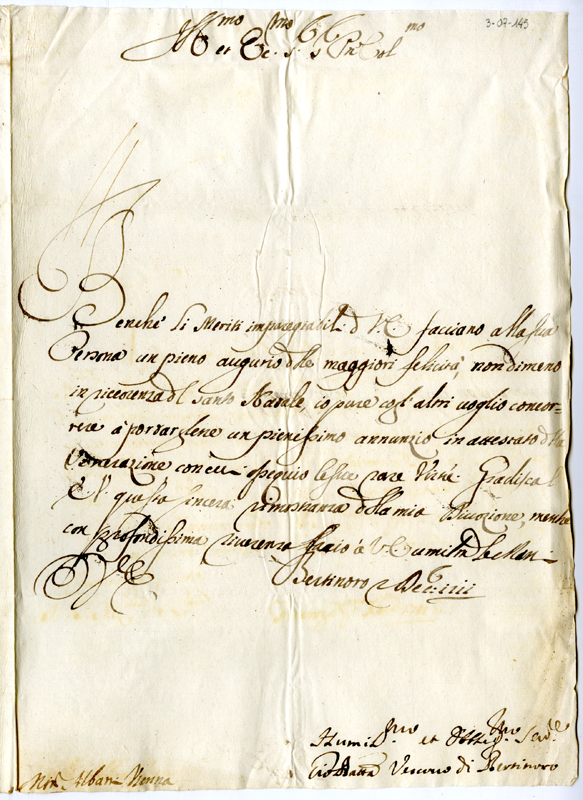 3-07-145
Ill.mo et Ecc.mo S.r S.r P.ron Col.mo
Benche li Meriti impareggiabili d V.E. facciano alla sua
Persona un pieno augurio dlle maggiori felicità, nondimeno
in ricorrenza dl Santo Natale, io pure cogl'altri uoglio concor-
rere à portarlene un pienissimo annunzio in attestato dlla
Venerazione con cui ossequio le sue rare Virtù Gradisca l
E.V. questa sincera rimostranza dlla mia Diuozione, mentre
con profondissima riuerenza faccio à V.E. umilm.te le Man-
Bertinoro
Humil.mo et Obblig.mo Seru.e
Gio Batta Vescouo di Bertinoro
Albani Vienna